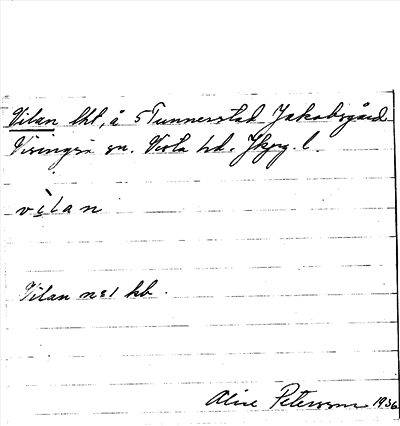 Vilan lht, å 5 Tunnerstad Jakobsgård
Visingsö sn. Vista hd. Jkpg. l.
vìlan
Vilan n:s1 kb.
Alice Petersson 1936